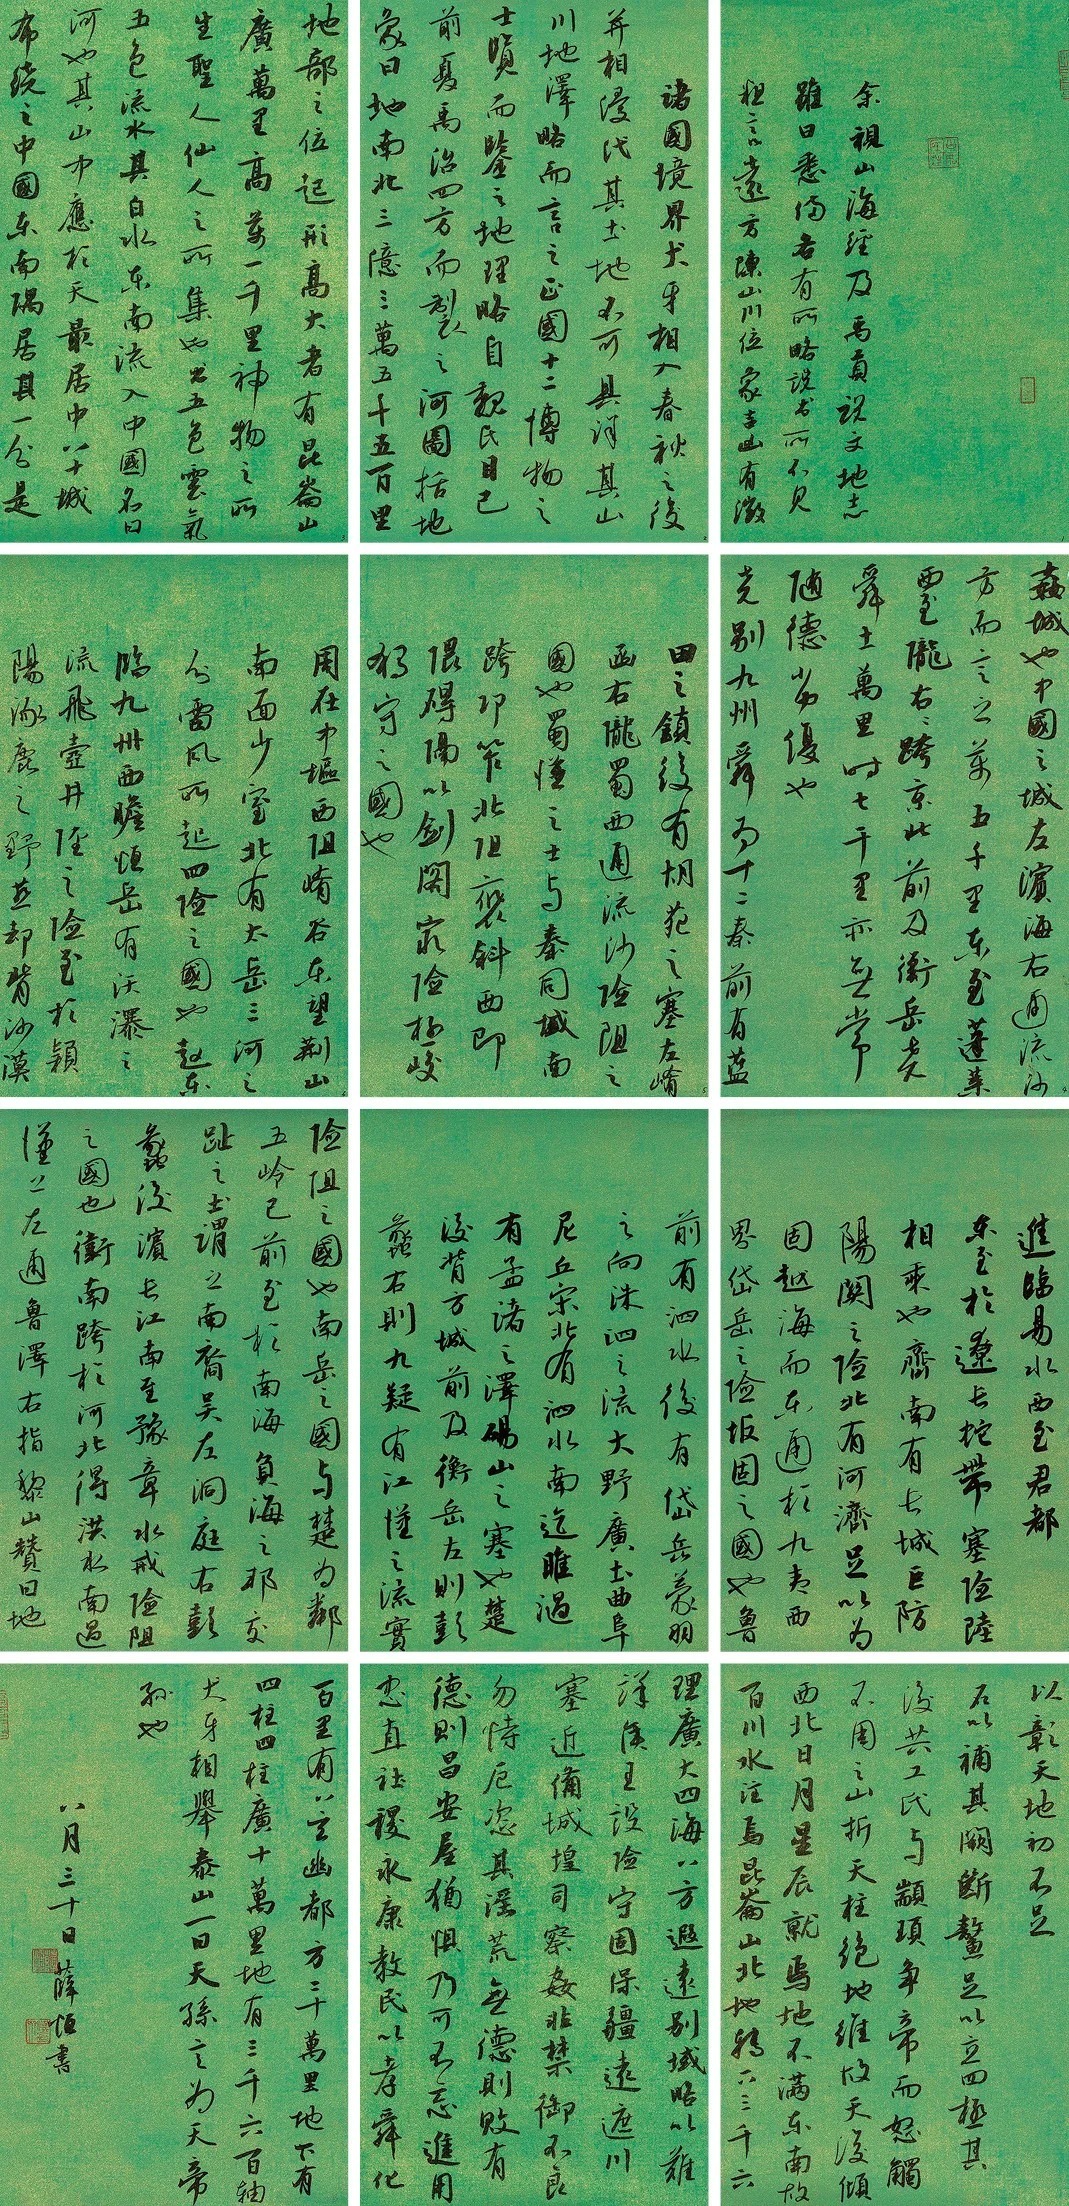 余視山海經及禹貢說文地志
雖曰悉備者有所略說書所不見
粗言以遠方陳山川位象吉凶有徵
諸國境界犬牙相入春秋之後
并相侵伐其土地不可具詳其山
川地澤略而言之正國十二博物之
士覽而鑒之地理略自魏氏目已
前夏禹治四方而製之河圖括地
象曰地南北三億三萬五千五百里
地部之位起形高大者有昆崙山
廣萬里高萬一千里神物之所
生聖人仙人之所集也出五色雲氣
五色流水其白水東南流入中國名曰
河也其山中應於天最居中八十城
布繞之中國東南隅居其一分是
姦城也中國之城左濱海右通流沙
方而言之萬五千里東至蓬萊
西至隴右右跨京北前及衡岳堯
舜土萬里時七千里亦無常
隨德劣優也
堯別九州舜為十二秦前有藍
田之鎮後有胡苑之塞左崤
函右隴蜀西通流沙險阻之
國也蜀漢之土與秦同域南
跨邛笮北阻褒斜西即
隈礙隔以劍閣窮險極峻
獨守之國也
周在中樞西阻崤谷東望荊山
南面少室北有太岳三河之
分雷風所起四險之國也趙東
臨九州西瞻恒岳有沃瀑之
流飛壺井陘之險至於潁
陽涿鹿之野燕却背沙漠
進臨易水西至君都
東至於遼長蛇帶塞險陸
相乘也齊南有長城巨防
陽關之險北有河濟足以為
固越海而東通於九夷西
界岱岳之險坂固之國也魯
前有泗水後有岱岳蒙羽
之向洙泗之流大野廣土曲阜
尼丘宋北有泗水南迄睢過
有孟諸之澤碭山之塞也楚
後背方城前及衡岳左則彭
蠡右則九疑有江漢之流實
險阻之國也南岳之國與楚為鄰
五嶺已前至於南海負海之邦交
趾之土謂之南裔吳左洞庭右彭
蠡後濱長江南至豫章水戒險阻
之國也衛南跨於河北得洪水南過
漢上左通魯澤右指黎山贊曰地
理廣大四海八方遐遠別域略以難
詳侯王設險守固保疆遠遮川
塞近備城堭司察姦非禁御不良
勿恃厄恣其淫荒無德則敗有
德則昌安屋猶懼乃可不忘進用
忠直社稷永康教民以孝舜化
以彰天地初不足
石以補其闕斷鰲足以立四極其
後共工氏與顓頊爭帝而怒觸
不周之山折天柱絕地維故天後傾
西北日月星辰就焉地不滿東南故
百川水注焉昆崙山北地轉下三千六
百里有八玄幽都方二十萬里地下有
四柱四柱廣十萬里地有三千六百軸
犬牙相舉泰山一曰天孫言為天帝
孫也
八月三十日薛恒書